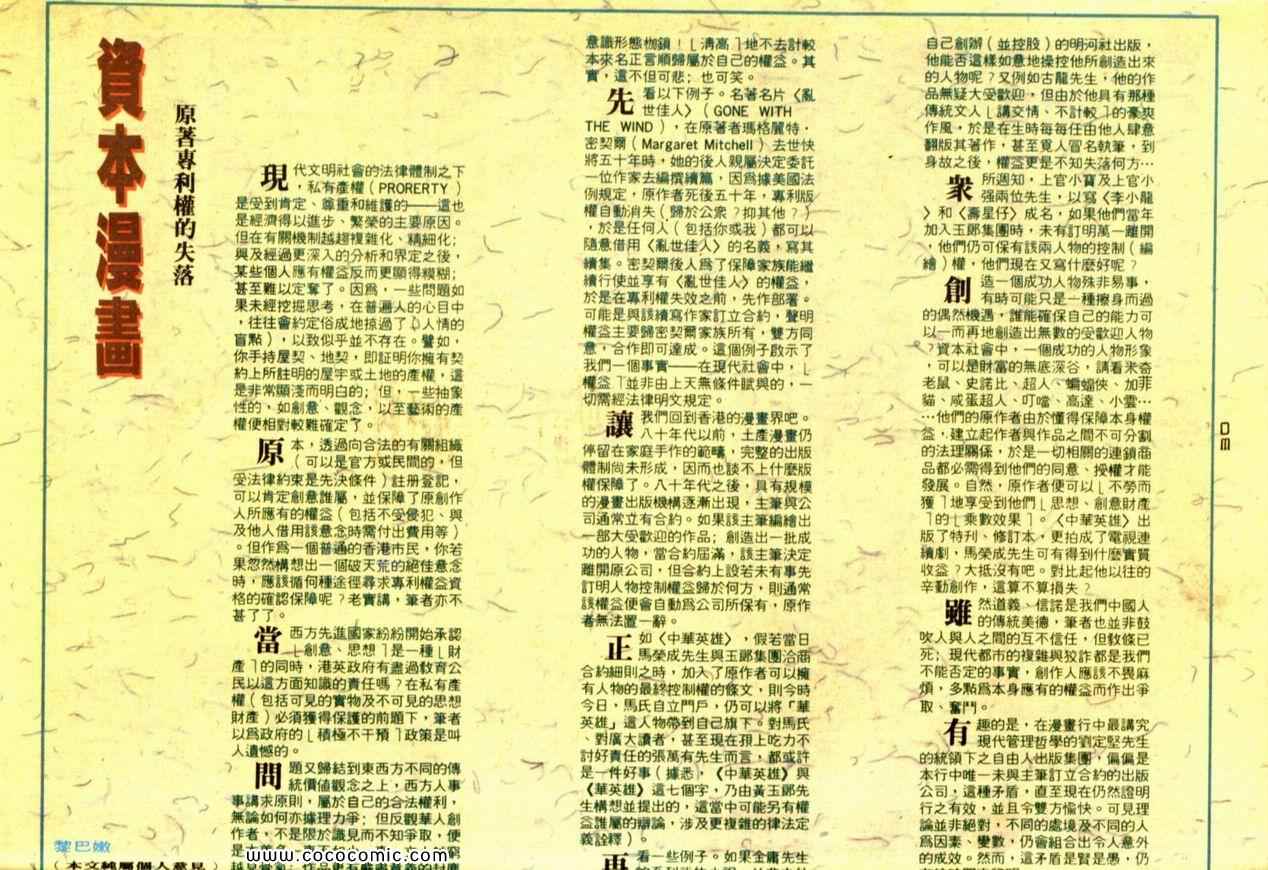 資本漫畫
原著專利權的失落
現代文明社會的法律體制之下
，私有產權（PRORERTY）
是受到肯定、尊重和維護的──這也
是經濟得以進步、繁榮的主要原因。
但在有關機制越趨複雜化、精細化；
與及經過更深入的分析和界定之後，
某些個人應有權益反而更顯得糢糊；
甚至難以定奪了。因爲，一些問題如
果未經挖掘思考，在普遍人的心目中
，往往會約定俗成地掠過了（人情的
盲點），以致似乎並不存在。譬如，
你手持屋契、地契，即証明你擁有契
約上所註明的屋宇或土地的產權，這
是非常顯淺而明白的；但，一些抽象
性的，如創意、觀念，以至藝術的產
權便相對較難確定了。
原本，透過向合法的有關組織
（可以是官方或民間的，但
受法律約束是先決條件）註册登記，
可以肯定創意誰屬，並保障了原創作
人所應有的權益（包括不受侵犯、與
及他人借用該意念時需付出費用等）
。但作爲一個普通的香港市民，你若
果忽然構想出一個破天荒的絕佳意念
時，應該循何種途徑尋求專利權益資
格的確認保障呢？老實講，筆者亦不
甚了了。
當西方先進國家紛紛開始承認
「創意、思想」是一種「財
產」的同時，港英政府有盡過敎育公
民以這方面知識的責任嗎？在私有產
權（包括可見的實物及不可見的思想
財產）必須獲得保護的前題下，筆者
以爲政府的「積極不干預」政策是叫
人遺憾的。
問題又歸結到東西方不同的傳
統價值觀念之上，西方人事
事講求原則，屬於自己的合法權利，
無論如何亦據理力爭；但反觀華人創
作者，不是限於識見而不知爭取，便
意識形態枷鎖！「清高」地不去計較
本來名正言順歸屬於自己的權益。其
實，這不但可悲；也可笑。
先看以下例子。名著名片〈亂
世佳人〉（GONE WITH
THE WIND），在原著者瑪格麗特．
密契爾（Margaret Mitchell）去世快
將五十年時，她的後人親屬決定委託
一位作家去編撰續篇，因爲據美國法
例規定，原作者死後五十年，專利版
權自動消失（歸於公衆？抑其他？）
，於是任何人（包括你或我）都可以
隨意借用〈亂世佳人〉的名義，寫其
續集。密契爾後人爲了保障家族能繼
續行使並享有〈亂世佳人〉的權益，
於是在專利權失效之前，先作部署。
可能是與該續寫作家訂立合約，聲明
權益主要歸密契爾家族所有，雙方同
意，合作即可達成。這個例子啟示了
我們一個事實──在現代社會中，「
權益」並非由上天無條件賦與的，一
切需經法律明文規定。
讓我們回到香港的漫畫界吧。
八十年代以前，土產漫畫仍
停留在家庭手作的範疇，完整的出版
體制尚未形成，因而也談不上什麼版
權保障了。八十年代之後，具有規模
的漫畫出版機構逐漸出現，主筆與公
司通常立有合約。如果該主筆編繪出
一部大受歡迎的作品；創造出一批成
功的人物，當合約屆滿，該主筆決定
離開原公司，但合約上設若未有事先
訂明人物控制權益歸於何方，則通常
該權益便會自動爲公司所保有，原作
者無法置一辭。
正如〈中華英雄〉，假若當日
馬榮成先生與玉郎集團洽商
合約細則之時，加入了原作者可以擁
有人物的最終控制權的條文，則今時
今日，馬氏自立門戶，仍可以將「華
英雄」這人物帶到自己旗下。對馬氏
、對廣大讀者，甚至現在孭上吃力不
討好責任的張萬有先生而言，都或許
是一件好事（據悉，《中華英雄》與
《華英雄》這七個字，乃由黃玉郎先
生構想並提出的，這當中可能另有權
益誰屬的辯論，涉及更複雜的律法定
義詮釋）。
再看一些例子。如果金庸先生
自己創辦（並控股）的明河社出版，
他能否這樣如意地操控他所創造出來
的人物呢？又例如古龍先生，他的作
品無疑大受歡迎，但由於他具有那種
傳統文人「講交情、不計較」的豪爽
作風，於是在生時每每任由他人肆意
翻版其著作，甚至竟人冒名執筆，到
身故之後，權益更是不知失落何方…
衆所週知，上官小寶及上官小
强兩位先生，以寫〈李小龍
〉和〈壽星仔〉成名，如果他們當年
加入玉郎集團時，未有訂明萬一離開
，他們仍可保有該兩人物的控制（編
繪）權，他們現在又寫什麼好呢？
創造一個成功人物殊非易事，
有時可能只是一種擦身而過
的偶然機遇，誰能確保自己的能力可
以一而再地創造出無數的受歡迎人物
？資本社會中，一個成功的人物形象
，可以是財富的無底深谷，請看米奇
老鼠、史諾比、超人、蝙蝠俠、加菲
貓、咸蛋超人、叮噹、高達、小雲…
…他們的原作者由於懂得保障本身權
益，建立起作者與作品之間不可分割
的法理關係，於是一切相關的連鎖商
品都必需得到他們的同意、授權才能
發展。自然，原作者便可以「不勞而
獲」地享受到他們「思想、創意財產
」的「乘數效果」。〈中華英雄〉出
版了特刊、修訂本，更拍成了電視連
續劇，馬榮成先生可有得到什麼實質
收益？大抵沒有吧。對比起他以往的
辛勤創作，這算不算損失？
雖然道義、信諾是我們中國人
的傳統美德，筆者也並非鼓
吹人與人之間的互不信任，但敎條已
死；現代都市的複雜與狡詐都是我們
不能否定的事實，創作人應該不畏麻
煩，多點爲本身應有的權益而作出爭
取、奮鬥。
有趣的是，在漫畫行中最講究
現代管理哲學的劉定堅先生
的統領下之自由人出版集團，偏偏是
本行中唯一未與主筆訂立合約的出版
公司，這種矛盾，直至現在仍然證明
行之有效，並且令雙方愉快。可見理
論並非絕對，不同的處境及不同的人
爲因素、變數，仍會組合出令人意外
的成效。然而，這矛盾是賢是愚，仍
黎巴嫩
（本文純屬個人意見）
www.cococomic.com